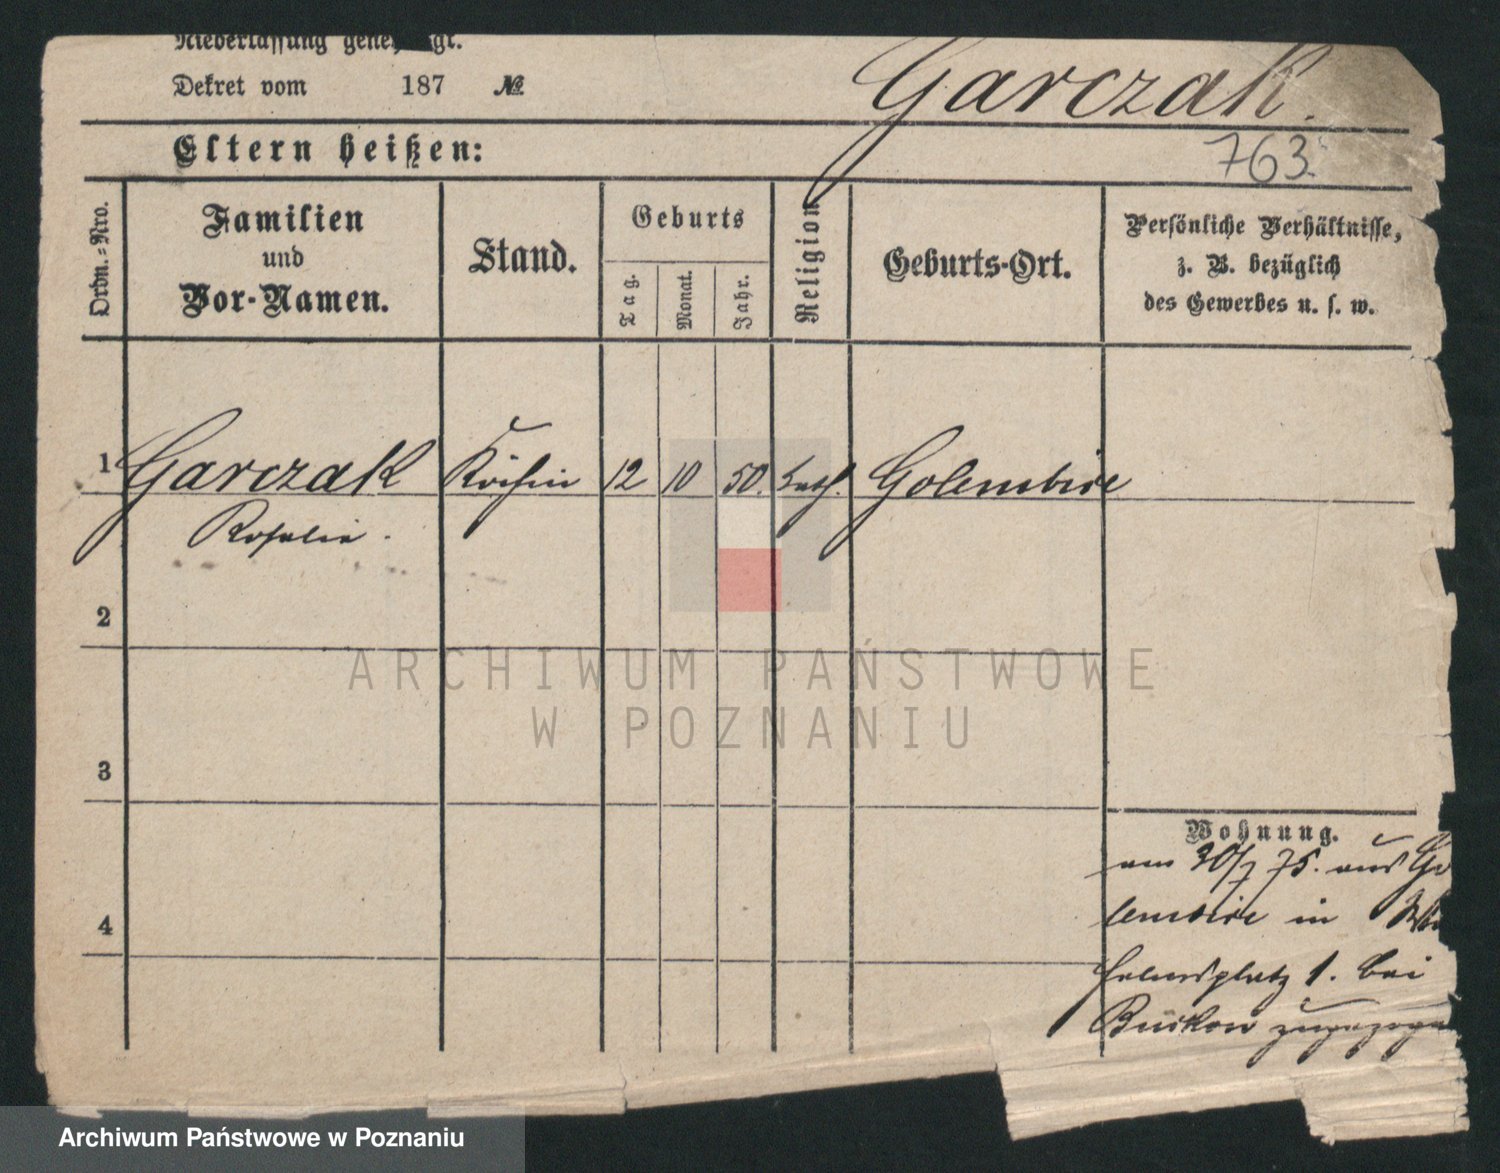 Niederlassung gene
Dekret vom 187 №
Garczak.
763
Eltern heißen:
Ordn.=Nro.
Familien
und
Vor-Namen.
Stand.
Geburts
Tag.
Monat.
Jahr.
Religion
Geburts-Ort.
Persönliche Verhältnisse,
z. B. bezüglich
des Gewerbes u. s. w.
1 Garczak Köchin 12 10 50. kath. Golembice
Rosalie.
2
3
4
Wohnung.
am 30/7 75. aus Go
lembice in
platz 1. bei
zugezoge
ARCHIWUM PAŃSTWOWE
W POZNANIU
Archiwum Państwowe w Poznaniu